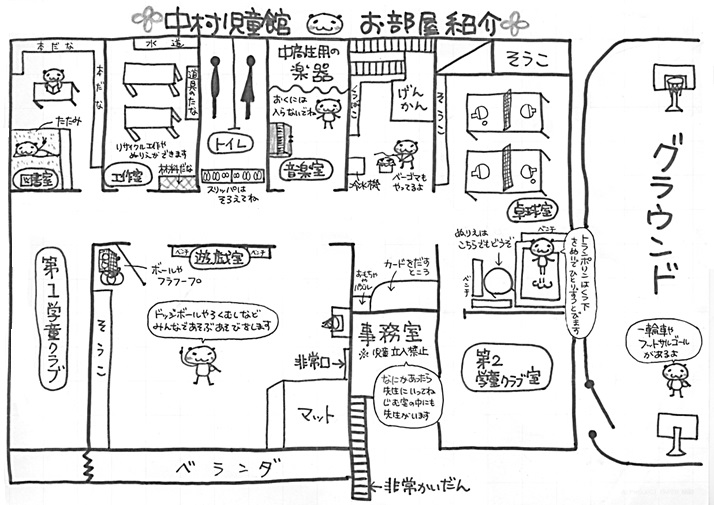 中村児童館 お部屋紹介
本だな
本だな
たたみ
図書室
水道
道具のたな
リサイクル工作や
ぬりえができます
工作室
材料だな
トイレ
スリッパは
そろえてね
中高生用の
楽器
おくには
入らないでね
音楽室
げんかん
冷水機
ベーゴマも
やってるよ
そうこ
そうこ
卓球室
ぬりえは
こちらでもどうぞ
ベンチ
ベンチ
トランポリンはくつ下
をぬいでひとりずつとびます
グラウンド
一輪車や
フットサルゴール
があるよ
第1学童クラブ
ベンチ
遊戯室
ベンチ
ボールや
フラフープ
そうこ
ドッジボールやろくむしなど
みんなであそぶあそびをします
非常口
マット
おもちゃの
カードをだす
ところ
事務室
※児童立入禁止
なにかあったら
先生にいってね
じむ室の中にも
先生がいます
第2
学童クラブ室
ベランダ
非常かいだん